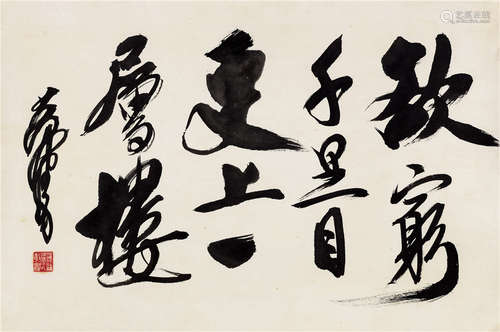 欲窮
千里目
更上一
層樓